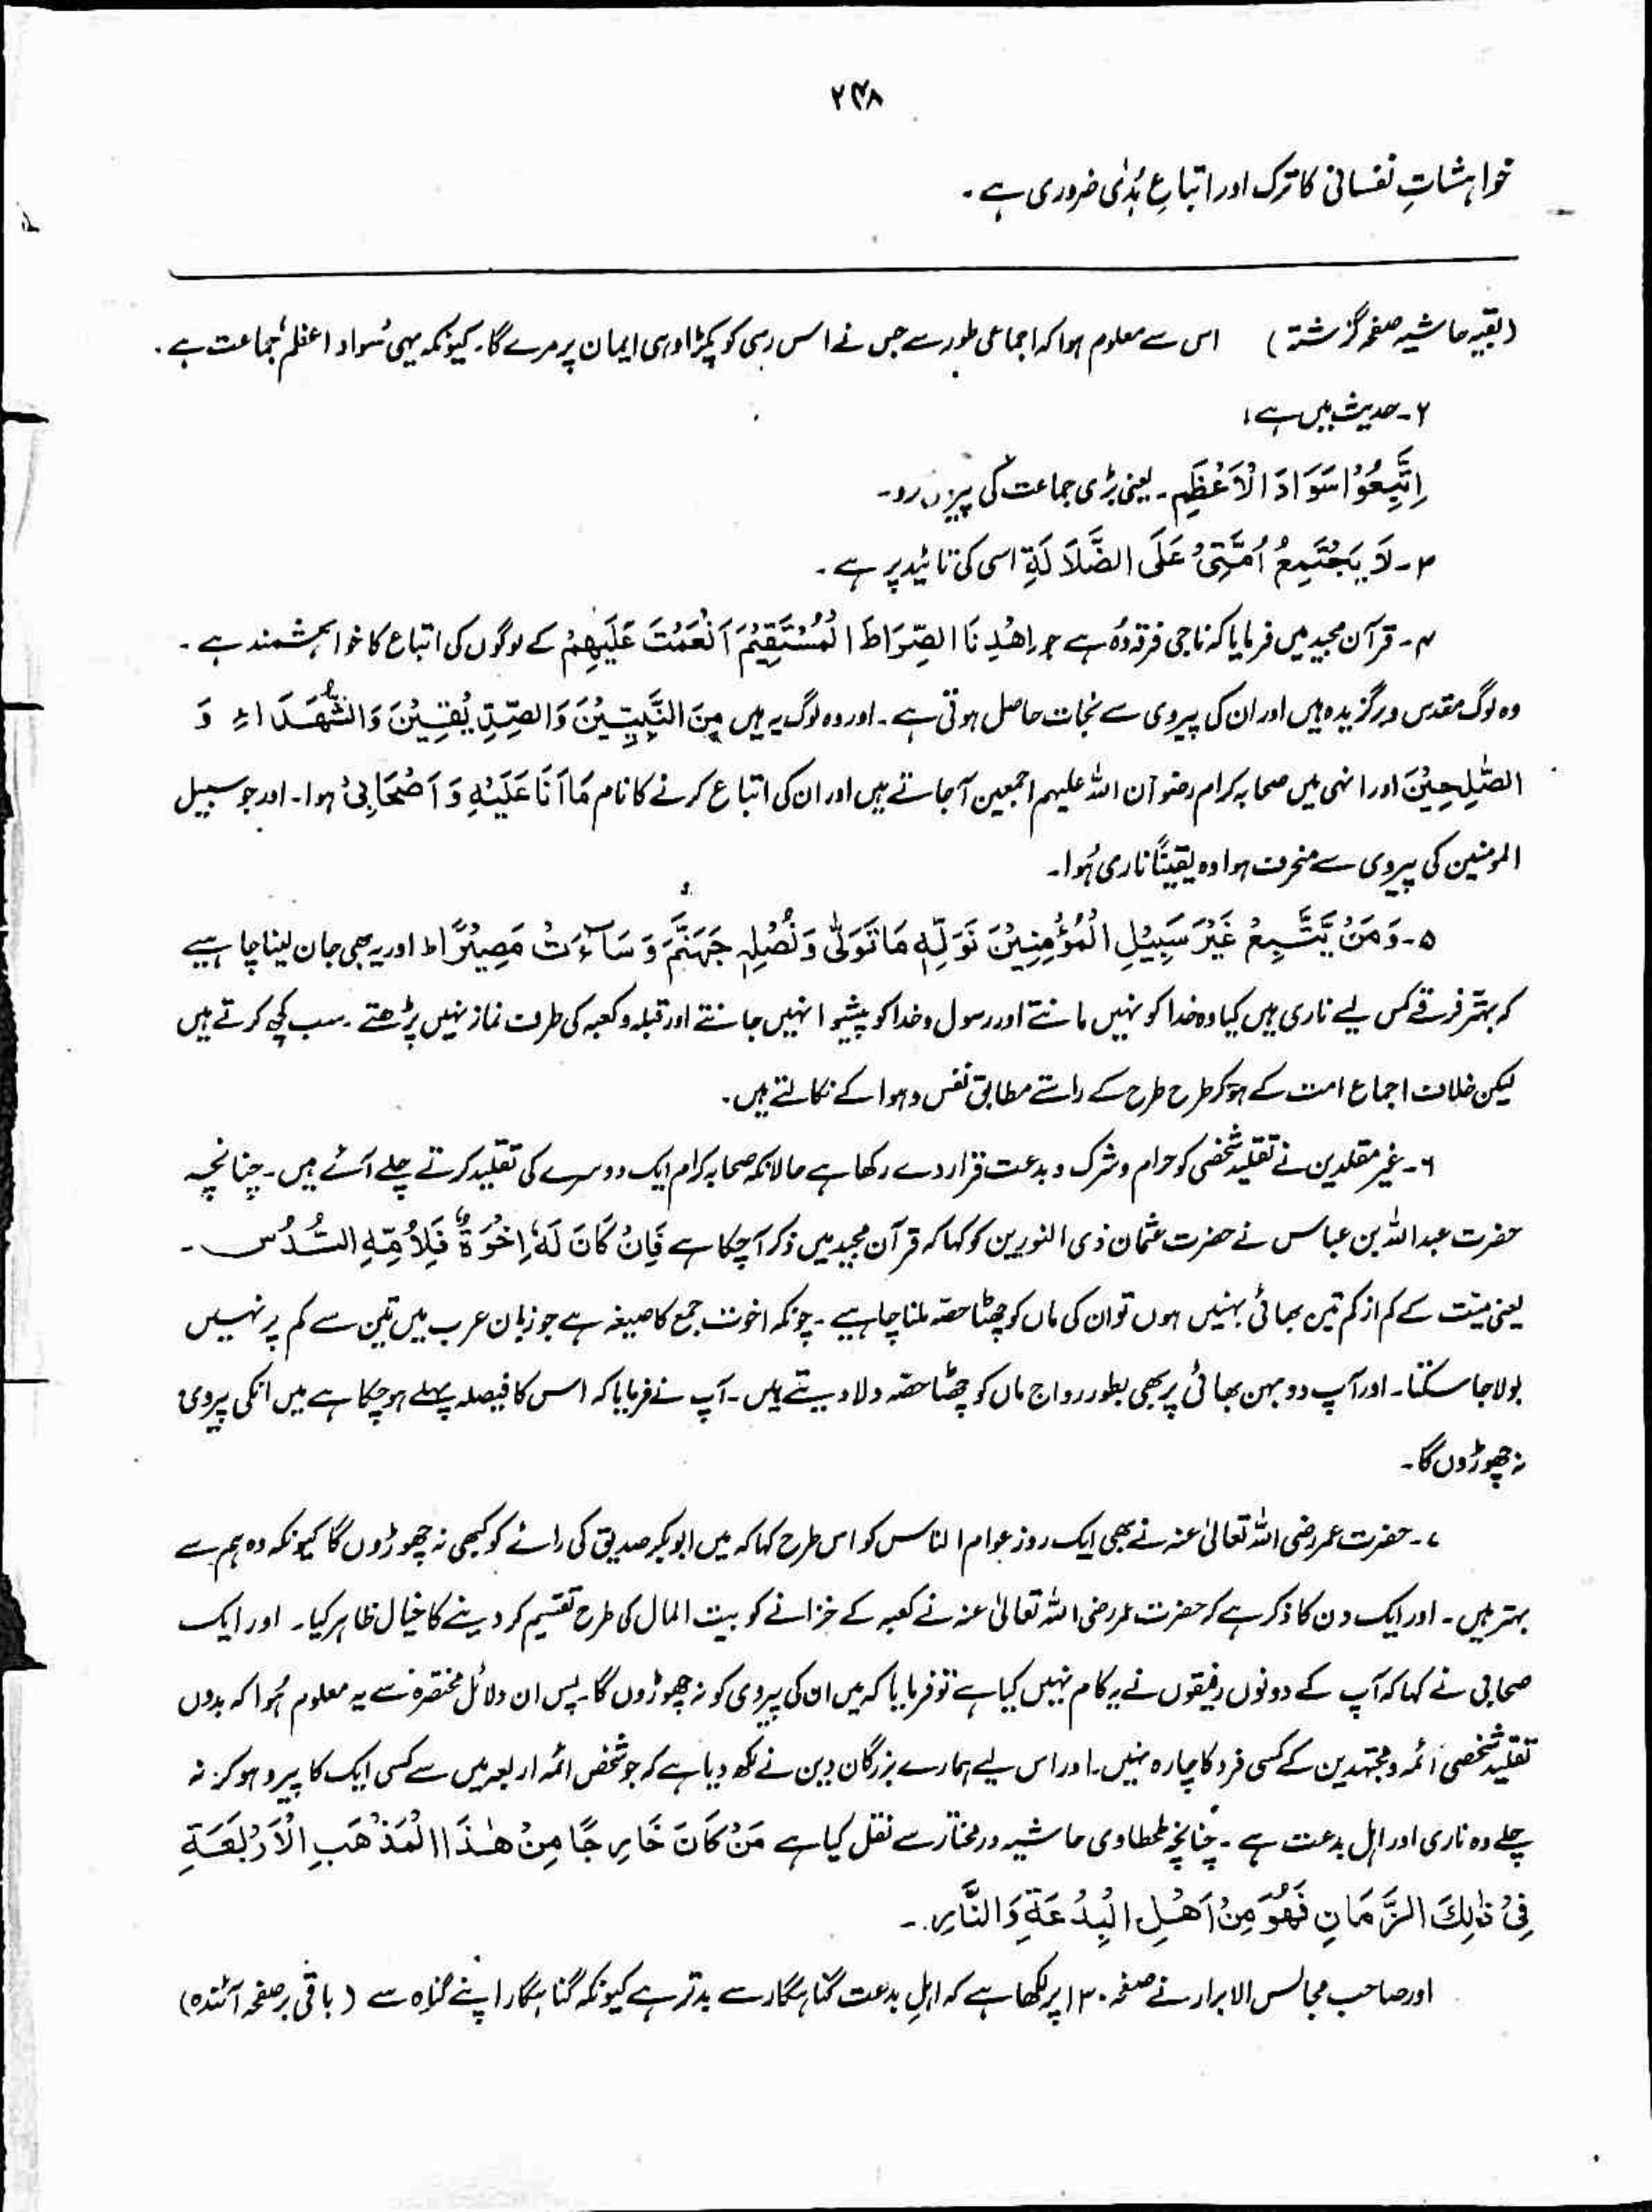 ۲۴۸
خواہشاتِ نفسانی کا ترک اور اتباعِ ہُدٰی ضروری ہے۔
(بقیہ حاشیہ صفحہ گزشتہ) اس سے معلوم ہوا کہ اجماعی طور سے جس نے اس رسی کو پکڑا وہی ایمان پر مرے گا۔ کیونکہ یہی سُواد اعظم جماعت ہے۔
۲۔ حدیث میں ہے:
اِتَّبِعُوْا سَوَادَ الْاَعْظَمِ۔ یعنی بڑی جماعت کی
۳۔ لَا یَجْتَمِعُ اُمَّتِیْ عَلَی الضَّلَالَۃِ اسی کی تائید پر ہے۔
۴۔ قرآن مجید میں فرمایا کہ ناجی فرقہ وُہ ہے جو اِھْدِنَا الصِّرَاطَ الْمُسْتَقِیْمَ اَنْعَمْتَ عَلَیْھِمْ کے لوگوں کی اتباع کا خواہشمند ہے۔
وہ لوگ مقدس و برگزیدہ ہیں اور ان کی پیروی سے نجات حاصل ہوتی ہے۔ اور وہ لوگ یہ ہیں مِنَ النَّبِیّٖنَ وَالصِّدِّیْقِیْنَ وَالشُّھَدَاءِ وَ
الصّٰلِحِیْنَ اور انہی میں صحابہ کرام رضوان اللہ علیہم اجمعین آ جاتے ہیں اور ان کی اتباع کرنے کا نام مَا اَنَا عَلَیْہِ وَ اَصْحَابِیْ ہوا۔ اور جو سبیل
المومنین کی پیروی سے منحرف ہوا وہ یقیناً ناری ہُوا۔
۵۔ وَمَنْ یَّتَّبِعْ غَیْرَ سَبِیْلِ الْمُؤْمِنِیْنَ نُوَلِّہٖ مَا تَوَلّٰی وَنُصْلِہٖ جَھَنَّمَ وَ سَآءَتْ مَصِیْرًا ط اور یہ بھی جان لینا چاہیے
کہ بہتّر فرقے کس لیے ناری ہیں کیا وہ خدا کو نہیں مانتے اور رسول و خدا کو پیشوا نہیں جانتے اور قبلہ و کعبہ کی طرف نماز نہیں پڑھتے۔ سب کچھ کرتے ہیں
لیکن خلاف اجماع امت کے ہو کر طرح طرح کے راستے مطابق نفس و ہوا کے نکالتے ہیں۔
۶۔ غیر مقلدین نے تقلید شخصی کو حرام و شرک و بدعت قرار دے رکھا ہے حالانکہ صحابہ کرام ایک دوسرے کی تقلید کرتے چلے آئے ہیں۔ چنانچہ
حضرت عبداللہ بن عباس نے حضرت عثمان ذی النورین کو کہا کہ قرآن مجید میں ذکر آ چکا ہے فَاِنْ کَانَ لَہٗ اِخْوَۃٌ فَلِاُمِّہِ السُّدُس۔
یعنی میّت کے کم از کم تین بھائی بہنیں ہوں تو ان کی ماں کو چھٹا حصّہ ملنا چاہیے۔ چونکہ اخوت جمع کا صیغہ ہے جو زبان عرب میں تین سے کم پر نہیں
بولا جا سکتا۔ اور آپ دو بہن بھائی پر بھی بطور رواج ماں کو چھٹا حصّہ دلا دیتے ہیں۔ آپ نے فرمایا کہ اس کا فیصلہ پہلے ہو چکا ہے میں انکی پیروی
نہ چھوڑوں گا۔
۷۔ حضرت عمر رضی اللہ تعالیٰ عنہ نے بھی ایک روز عوام الناس کو اس طرح کہا کہ میں ابوبکر صدیق کی رائے کو کبھی نہ چھوڑوں گا کیونکہ وہ ہم سے
بہتر ہیں۔ اور ایک دن کا ذکر ہے کہ حضرت عمر رضی اللہ تعالیٰ عنہ نے کعبہ کے خزانے کو بیت المال کی طرح تقسیم کر دینے کا خیال ظاہر کیا۔ اور ایک
صحابی نے کہا کہ آپ کے دونوں رفیقوں نے یہ کام نہیں کیا ہے تو فرمایا کہ میں ان کی پیروی کو نہ چھوڑوں گا۔ پس ان دلائل مختصرہ سے یہ معلوم ہُوا کہ بدوں
تقلید شخصی ائمہ و مجتہدین کے کسی فرد کا چارہ نہیں۔ اور اس لیے ہمارے بزرگان دین نے لکھ دیا ہے کہ جو شخص ائمہ اربعہ میں سے کسی ایک کا پیرو ہو کر نہ
چلے وہ ناری اور اہل بدعت ہے۔ چنانچہ طحطاوی حاشیہ درمختار سے نقل کیا ہے مَنْ کَانَ خَارِجًا مِنْ ھٰذَا الْمَذْھَبِ الْاَرْبَعَۃِ
فِیْ ذٰلِکَ الزَّمَانِ فَھُوَ مِنْ اَھْلِ الْبِدْعَۃِ وَالنَّارِ۔
اور صاحب مجالس الابرار نے صفحہ ۱۳۰ پر لکھا ہے کہ اہلِ بدعت گناہگار سے بدتر ہے کیونکہ گناہگار اپنے گناہ سے (باقی بر صفحہ آئندہ)